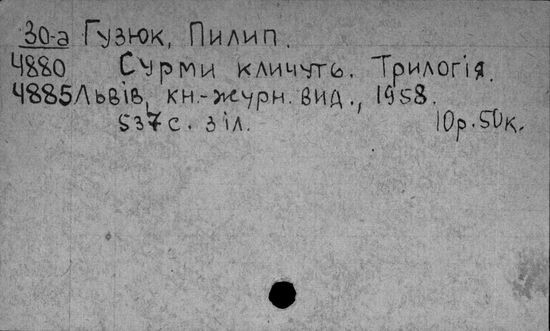 30-а Гузюк, Пилип.
4880 Сурми кличуть. Трилогія.
4885 Львів, кн.-журн. вид., 1958.
537 с. з іл. 10р. 50к.